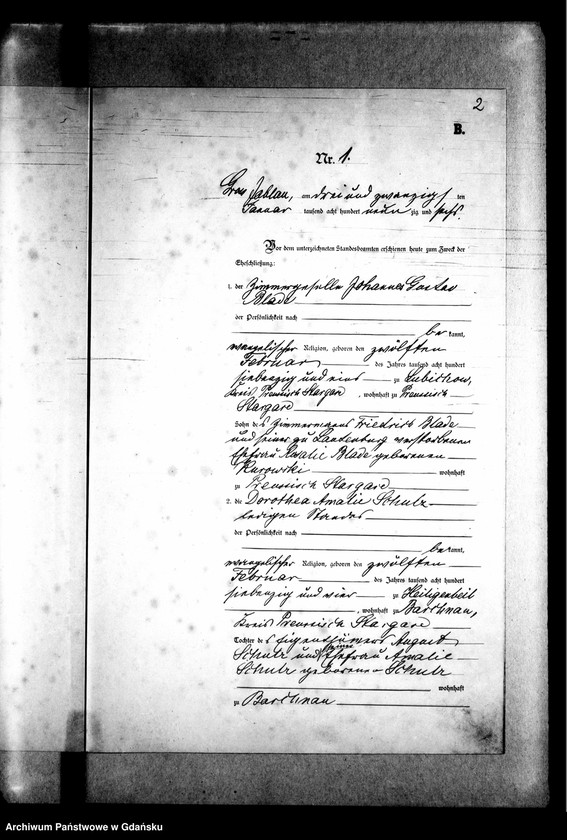 2
B.
Nr. 1.
Gross Jablau, am drei und zwanzigsten
Januar tausend acht hundert neunzig und sechs.
Vor dem unterzeichneten Standesbeamten erschienen heute zum Zweck der
Eheschließung:
1. der Zimmergeselle Johannes Gustav
Blade
der Persönlichkeit nach
bekannt,
evangelischer Religion, geboren den zwölften
Februar des Jahres tausend acht hundert
siebenzig und eins zu Lubichow,
Kreis Preussisch Stargard, wohnhaft zu Preussisch
Stargard
Sohn des Zimmermanns Friedrich Blade
und seiner zu Lautenburg verstorbenen
Ehefrau Rosalie Blade geborenen
Kurowski wohnhaft
zu Preussisch Stargard
2. die Dorothea Amalie Schulz
ledigen Standes
der Persönlichkeit nach
bekannt,
evangelischer Religion, geboren den zwölften
Februar des Jahres tausend acht hundert
siebenzig und vier zu Heiligenbeil
, wohnhaft zu Barchnau,
Kreis Preussisch Stargard
Tochter des Eigenthümers August
Schulz und seiner Ehefrau Amalie
Schulz geborenen Schulz
wohnhaft
zu Barchnau
Archiwum Państwowe w Gdańsku